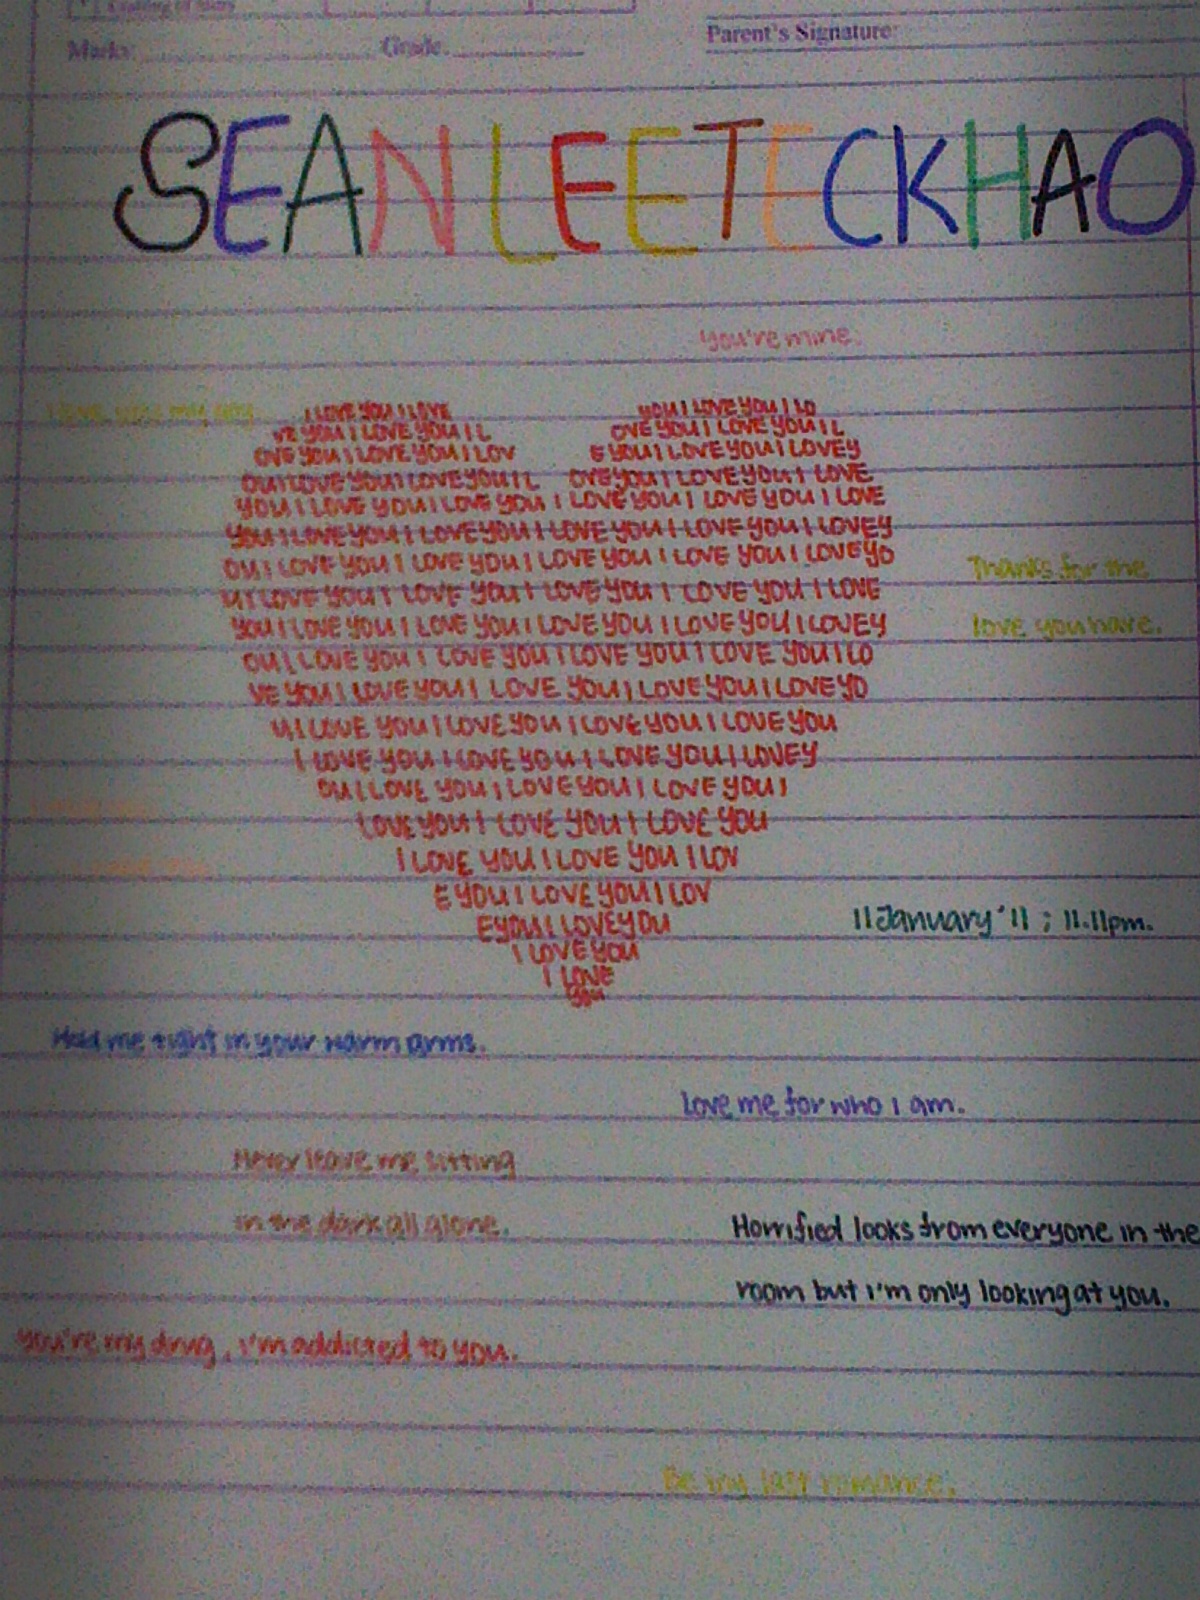 Marks:
Grade.
Parent's Signature:
SEAN LEE TECK HAO
you're mine.
I LOVE YOU I LOVE YOU I LOVE YOU I LO
VE YOU I LOVE YOU I L OVE YOU I LOVE YOU I L
OVE YOU I LOVE YOU I LOV E YOU I LOVE YOU I LOVE Y
OU I LOVE YOU I LOVE YOU I L OVE YOU I LOVE YOU I LOVE
YOU I LOVE YOU I LOVE YOU I LOVE YOU I LOVE YOU I LOVE
YOU I LOVE YOU I LOVE YOU I LOVE YOU I LOVE YOU I LOVE Y
OU I LOVE YOU I LOVE YOU I LOVE YOU I LOVE YOU I LOVE YO
U I LOVE YOU I LOVE YOU I LOVE YOU I LOVE YOU I LOVE
Thanks for the
YOU I LOVE YOU I LOVE YOU I LOVE YOU I LOVE YOU I LOVE Y
love you have.
OU I LOVE YOU I LOVE YOU I LOVE YOU I LOVE YOU I LO
VE YOU I LOVE YOU I LOVE YOU I LOVE YOU I LOVE YO
U I LOVE YOU I LOVE YOU I LOVE YOU I LOVE YOU
I LOVE YOU I LOVE YOU I LOVE YOU I LOVE Y
OU I LOVE YOU I LOVE YOU I LOVE YOU I
LOVE YOU I LOVE YOU I LOVE YOU
I LOVE YOU I LOVE YOU I LOV
E YOU I LOVE YOU I LOV
E YOU I LOVE YOU
I LOVE YOU
I LOVE
YOU
11 January '11 ; 11.11pm.
Hold me tight in your warm arms.
Love me for who I am.
Never leave me sitting
in the dark all alone.
Horrified looks from everyone in the
room but I'm only looking at you.
you're my drug, I'm addicted to you.
Be my last romance.